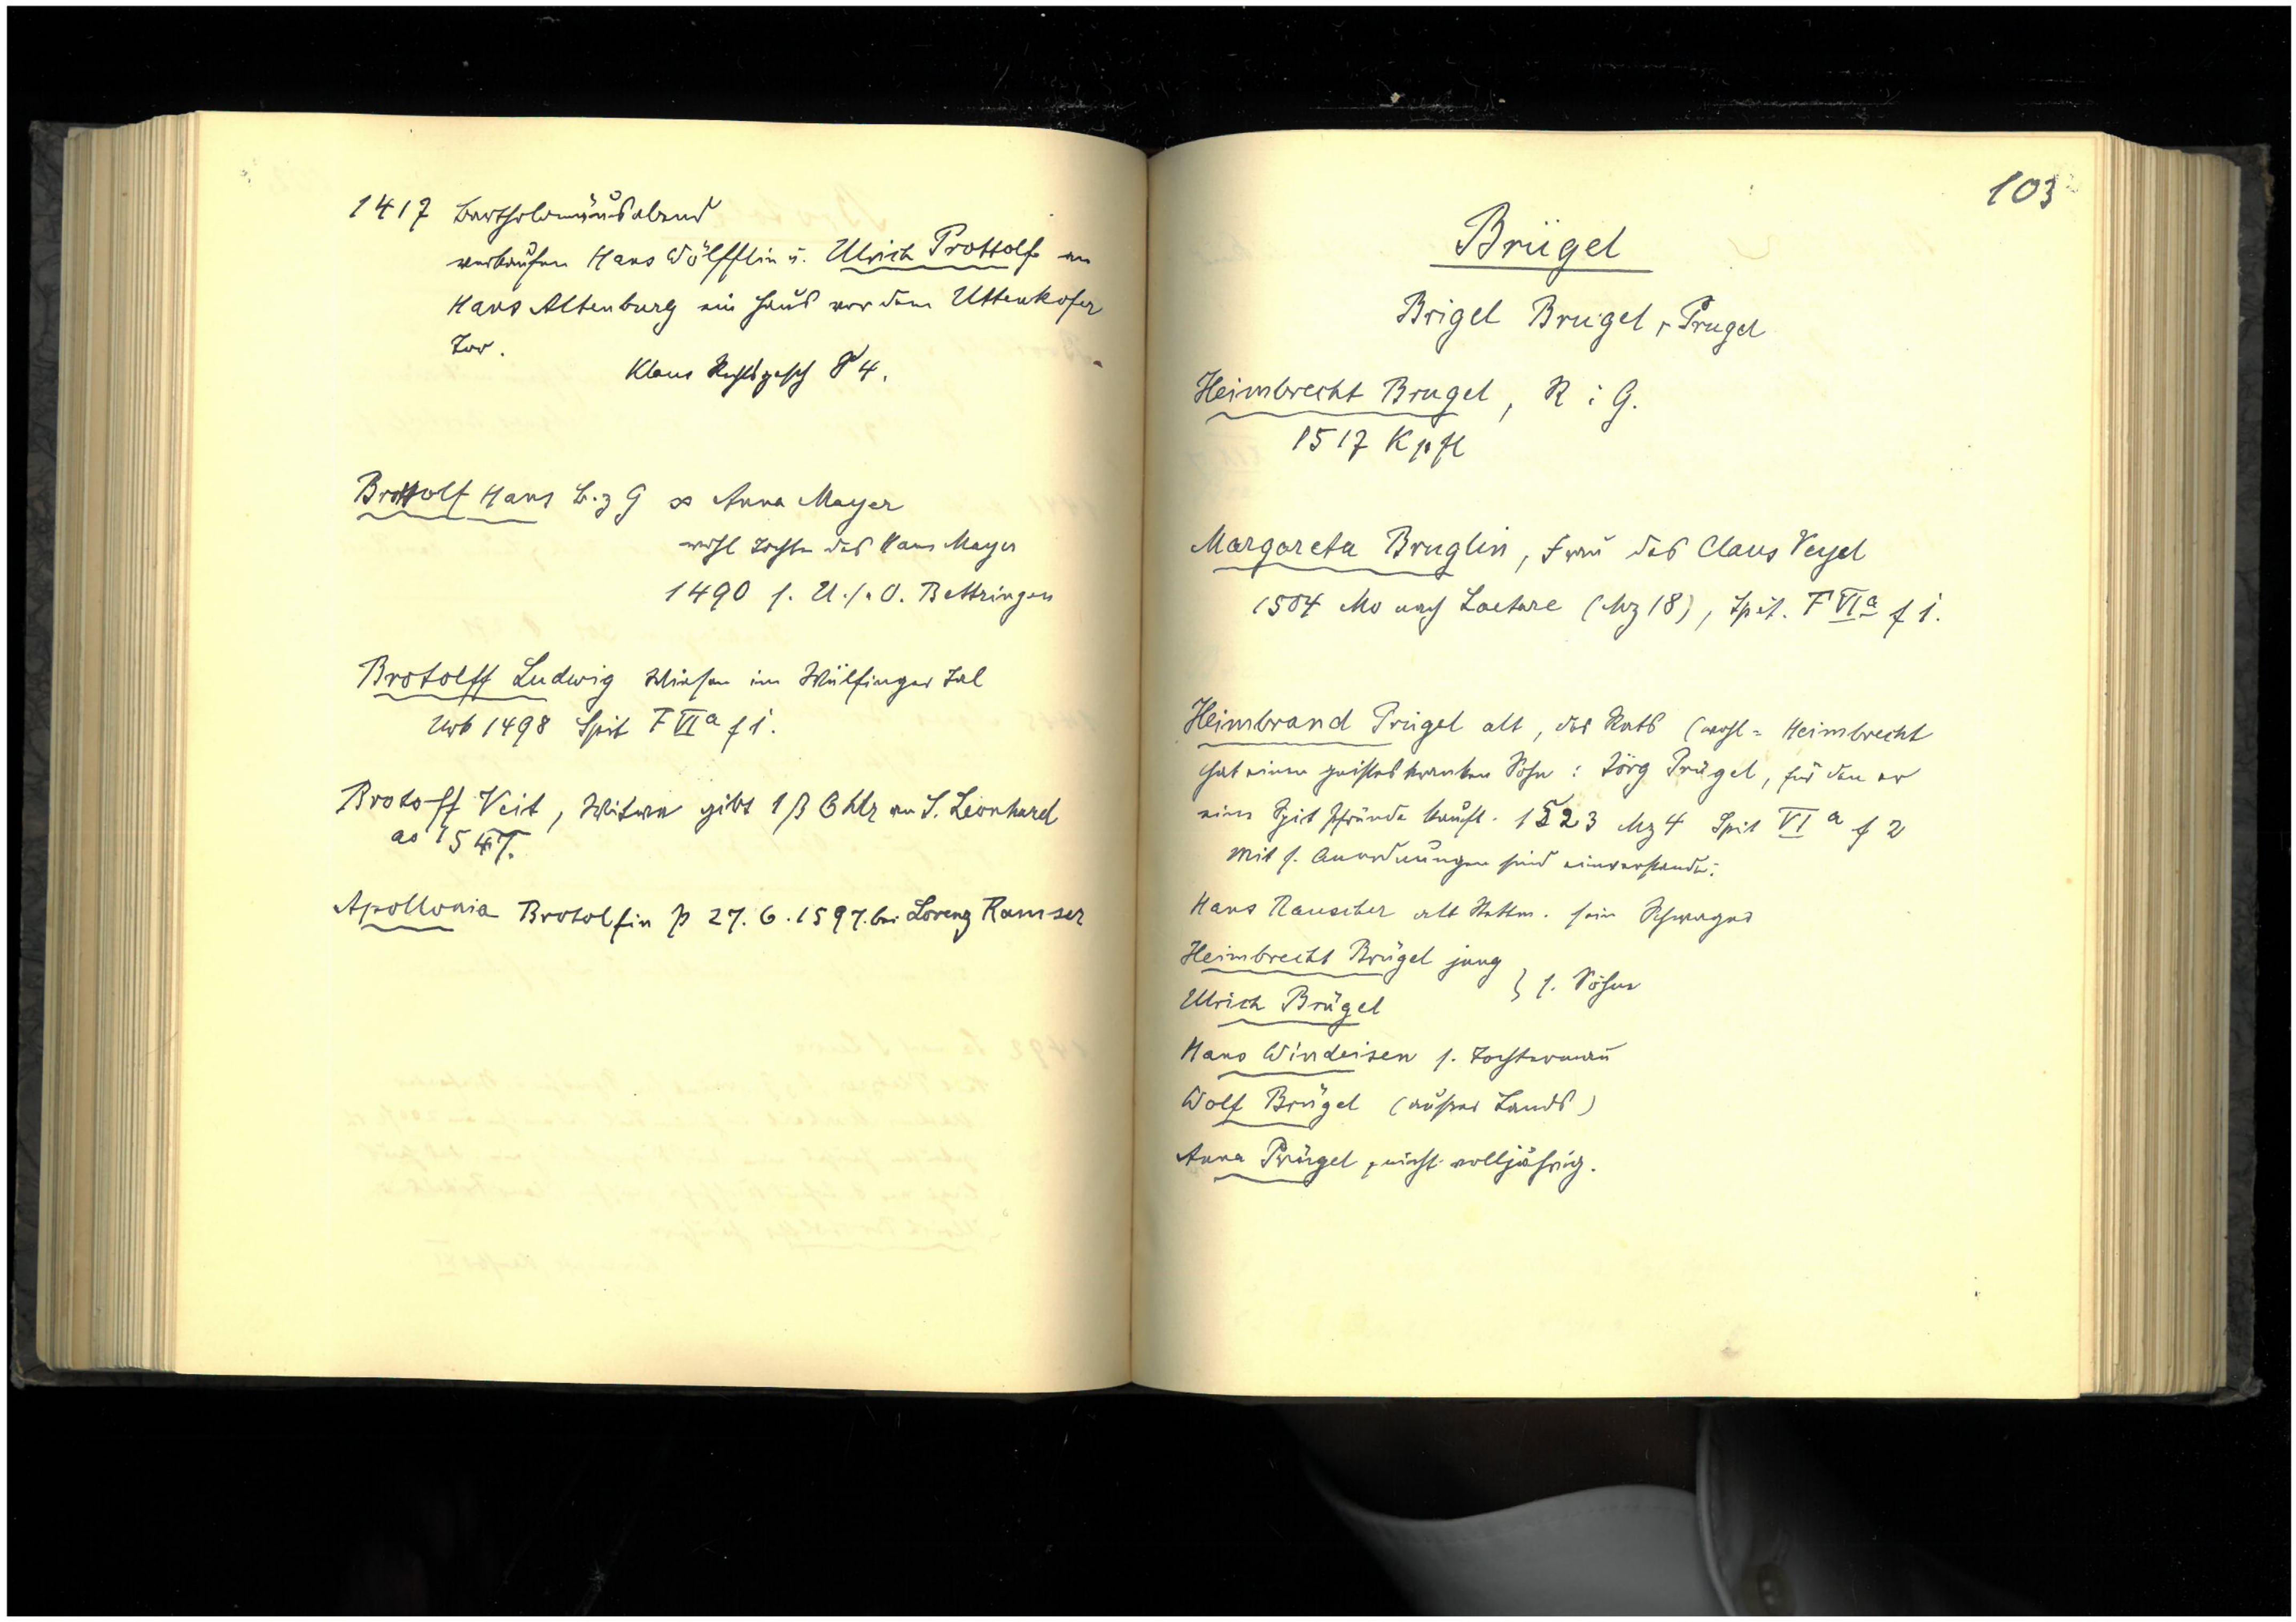 1417 Bartholomäusabend
verkaufen Hans Wölfflin u. Ulrich Prottolf an
Hans Altenburg ein Haus vor dem Uttenkofer
Tor.
Klaus Rechtsgesch 84.
Brottolf Hans B. z G ∞ Anna Mayer
wohl Tochter des Hans Mayer
1490 s. U. / . O. Bettringen
Brotolff Ludwig Wiesen im Wülfinger Tal
Urb 1498 Spit F VI a f 1.
Brotoff Veit, Witwe gibt 1 ß 6 hlr an S. Leonhard
ao 1547.
Apollonia Brotolfin p 27. 6. 1597. bei Lorenz Ramser
103
Brügel
Brigel Brugel, Prugel
Heimbrecht Brugel, R i G.
1517 Kpfl
Margareta Bruglin, Frau des Claus Veyel
1504 Mo nach Laetare (Mz 18), Spit. F VI a f 1.
Heimbrand Prügel alt, des Rats (wohl = Heimbrecht
hat einen geisteskranken Sohn : Jörg Prügel, für den er
eine Spit Pfründe kauft. 1523 Mz 4 Spit VI a f 2
Mit s. Anordnungen sind einverstanden:
Hans Rauscher alt Stettm. sein Schwager
Heimbrecht Brügel jung
Ulrich Brügel } s. Söhne
Hans Windeisen s. Tochtermann
Wolf Brügel (außer Lands)
Anna Prügel, nicht volljährig.